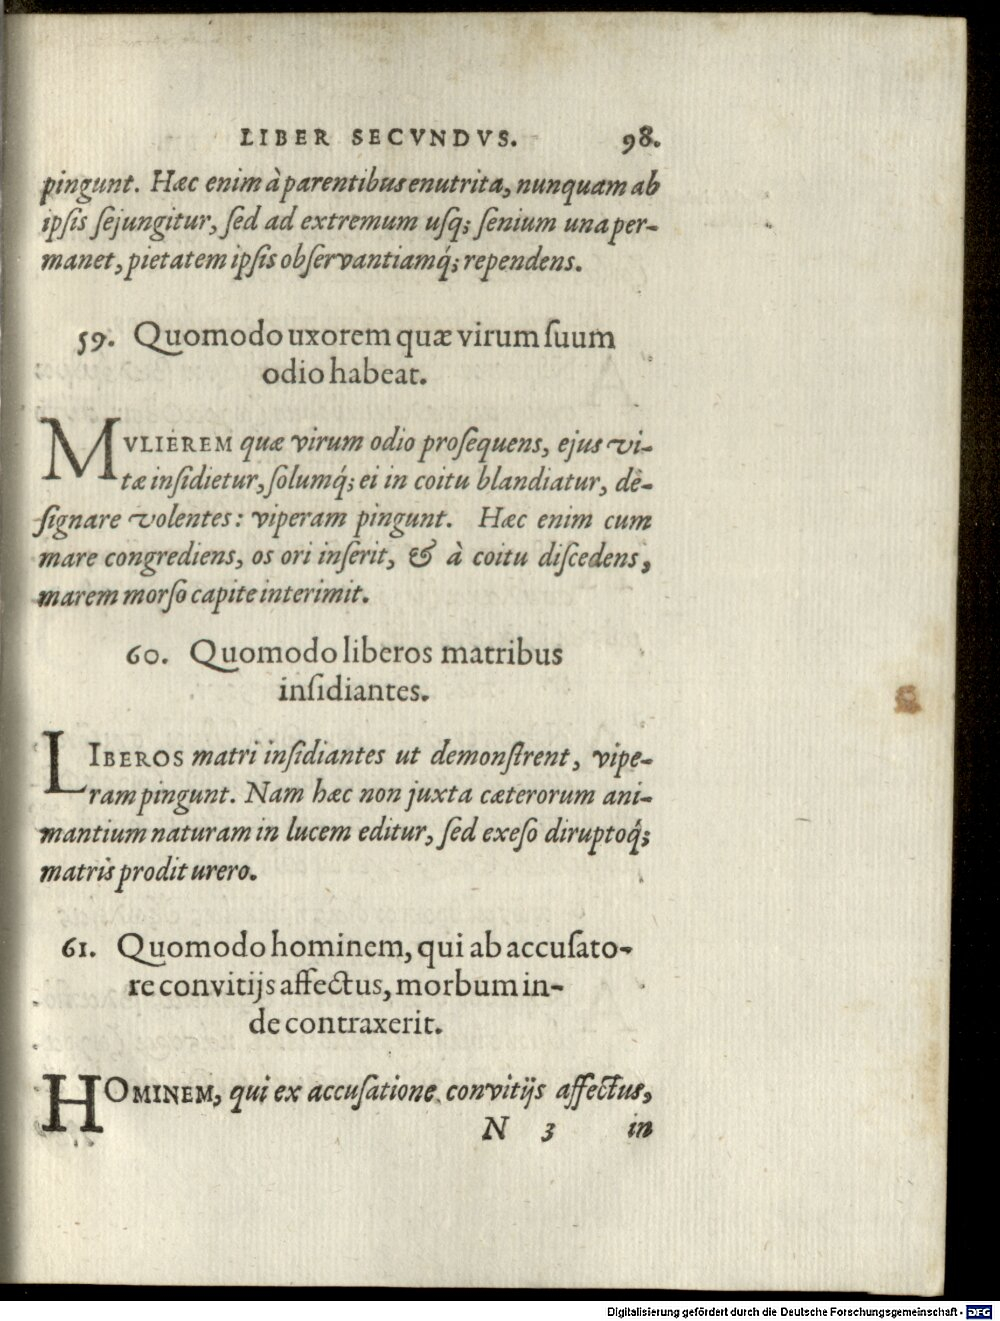 LIBER SECVNDVS. 98.
pingunt. Hæc enim à parentibus enutrita, nunquam ab
ipsis sejungitur, sed ad extremum usq; senium una per-
manet, pietatem ipsis observantiamq́; rependens.
59. Quomodo uxorem quæ virum suum
odio habeat.
MVLIEREM quæ virum odio prosequens, ejus vi-
tæ insidietur, solumq́; ei in coitu blandiatur, de-
signare volentes: viperam pingunt. Hæc enim cum
mare congrediens, os ori inserit, & à coitu discedens,
marem morso capite interimit.
60. Quomodo liberos matribus
insidiantes.
LIBEROS matri insidiantes ut demonstrent, vipe-
ram pingunt. Nam hæc non juxta cæterorum ani-
mantium naturam in lucem editur, sed exeso diruptoq́;
matris prodit urero.
61. Quomodo hominem, qui ab accusato-
re convitijs affectus, morbum in-
de contraxerit.
HOMINEM, qui ex accusatione convitijs affectus,
N 3 in
Digitalisierung gefördert durch die Deutsche Forschungsgemeinschaft - DFG